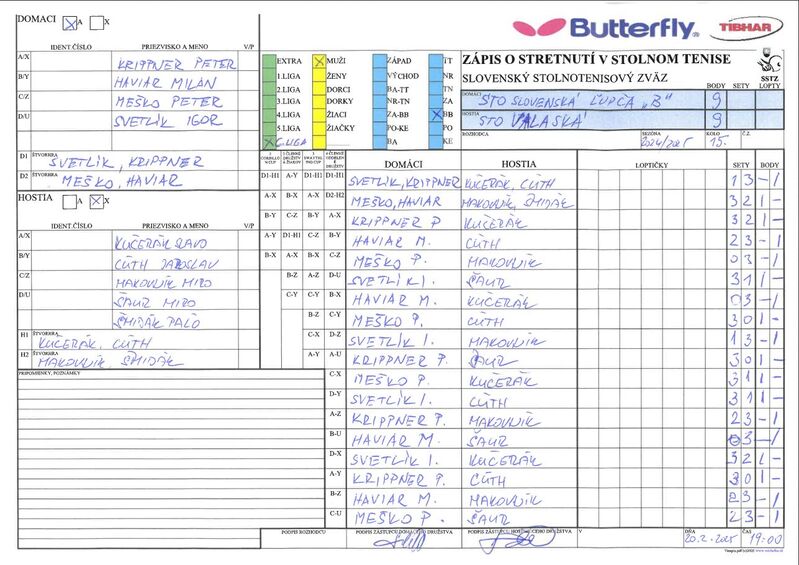 DOMÁCI A X
Butterfly TIBHAR
IDENT.ČÍSLO PRIEZVISKO A MENO V/P
A/X KRIPPNER PETER
B/Y HAVIAR MILAN
C/Z MEŠKO PETER
D/U SVETLÍK IGOR
D1 ŠTVORHRA SVETLÍK, KRIPPNER
D2 MEŠKO, HAVIAR
HOSTIA A X
IDENT.ČÍSLO PRIEZVISKO A MENO V/P
A/X KUČERÁK SLAVO
B/Y CÚTH JAROSLAV
C/Z MAKOVNÍK MIRO
D/U ŠAUR MIRO
ŠMIDÁK PAĽO
H1 ŠTVORHRA KUČERÁK, CÚTH
H2 MAKOVNÍK, ŠMIDÁK
PRIPOMIENKY, POZNÁMKY
EXTRA MUŽI ZÁPAD TT
1.LIGA ŽENY VÝCHOD NR
2.LIGA DORCI BA-TT TN
3.LIGA DORKY NR-TN ZA
4.LIGA ŽIACI ZA-BB BB
5.LIGA ŽIAČKY PO-KE PO
6.LIGA BA KE
ZÁPIS O STRETNUTÍ V STOLNOM TENISE
SLOVENSKÝ STOLNOTENISOVÝ ZVÄZ
SSTZ
BODY SETY LOPTY
DOMÁCI STO SLOVENSKÁ ĽUPČA „B" 9
HOSTIA STO VALASKÁ 9
ROZHODCA SEZÓNA 2024/2025 KOLO 15. Č.Z.
DOMÁCI HOSTIA LOPTIČKY SETY BODY
D1-H1 A-Y D1-H1 D1-H1 SVETLÍK, KRIPPNER KUČERÁK, CÚTH 1 3 – 1
A-X B-X A-X D2-H2 MEŠKO, HAVIAR MAKOVNÍK, ŠMIDÁK 3 2 1 –
B-Y C-Z B-Y A-X KRIPPNER P KUČERÁK 3 2 1 –
A-Y D1-H1 C-Z B-Y HAVIAR M. CÚTH 2 3 – 1
B-X A-X B-X C-Z MEŠKO P. MAKOVNÍK 0 3 – 1
B-Z A-Z D-U SVETLÍK I. ŠAUR 3 1 1 –
C-Y C-Y B-X HAVIAR M. KUČERÁK 0 3 – 1
B-Z C-Y MEŠKO P. CÚTH 3 0 1 –
C-X D-Z SVETLÍK I. MAKOVNÍK 1 3 – 1
A-Y A-U KRIPPNER P. ŠAUR 3 0 1 –
C-X MEŠKO P. KUČERÁK 3 1 1 –
D-Y SVETLÍK I. CÚTH 3 1 1 –
A-Z KRIPPNER P. MAKOVNÍK 2 3 – 1
B-U HAVIAR M. ŠAUR 0 3 – 1
D-X SVETLÍK I. KUČERÁK 3 2 1 –
A-Y KRIPPNER P. CÚTH 3 0 1 –
B-Z HAVIAR M. MAKOVNÍK 2 3 – 1
C-U MEŠKO P. ŠAUR 2 3 – 1
PODPIS ROZHODCU PODPIS ZÁSTUPCU DOMÁCEHO DRUŽSTVA PODPIS ZÁSTUPCU HOSŤUJÚCEHO DRUŽSTVA V DŇA 20.2.2025 ČAS 19:00